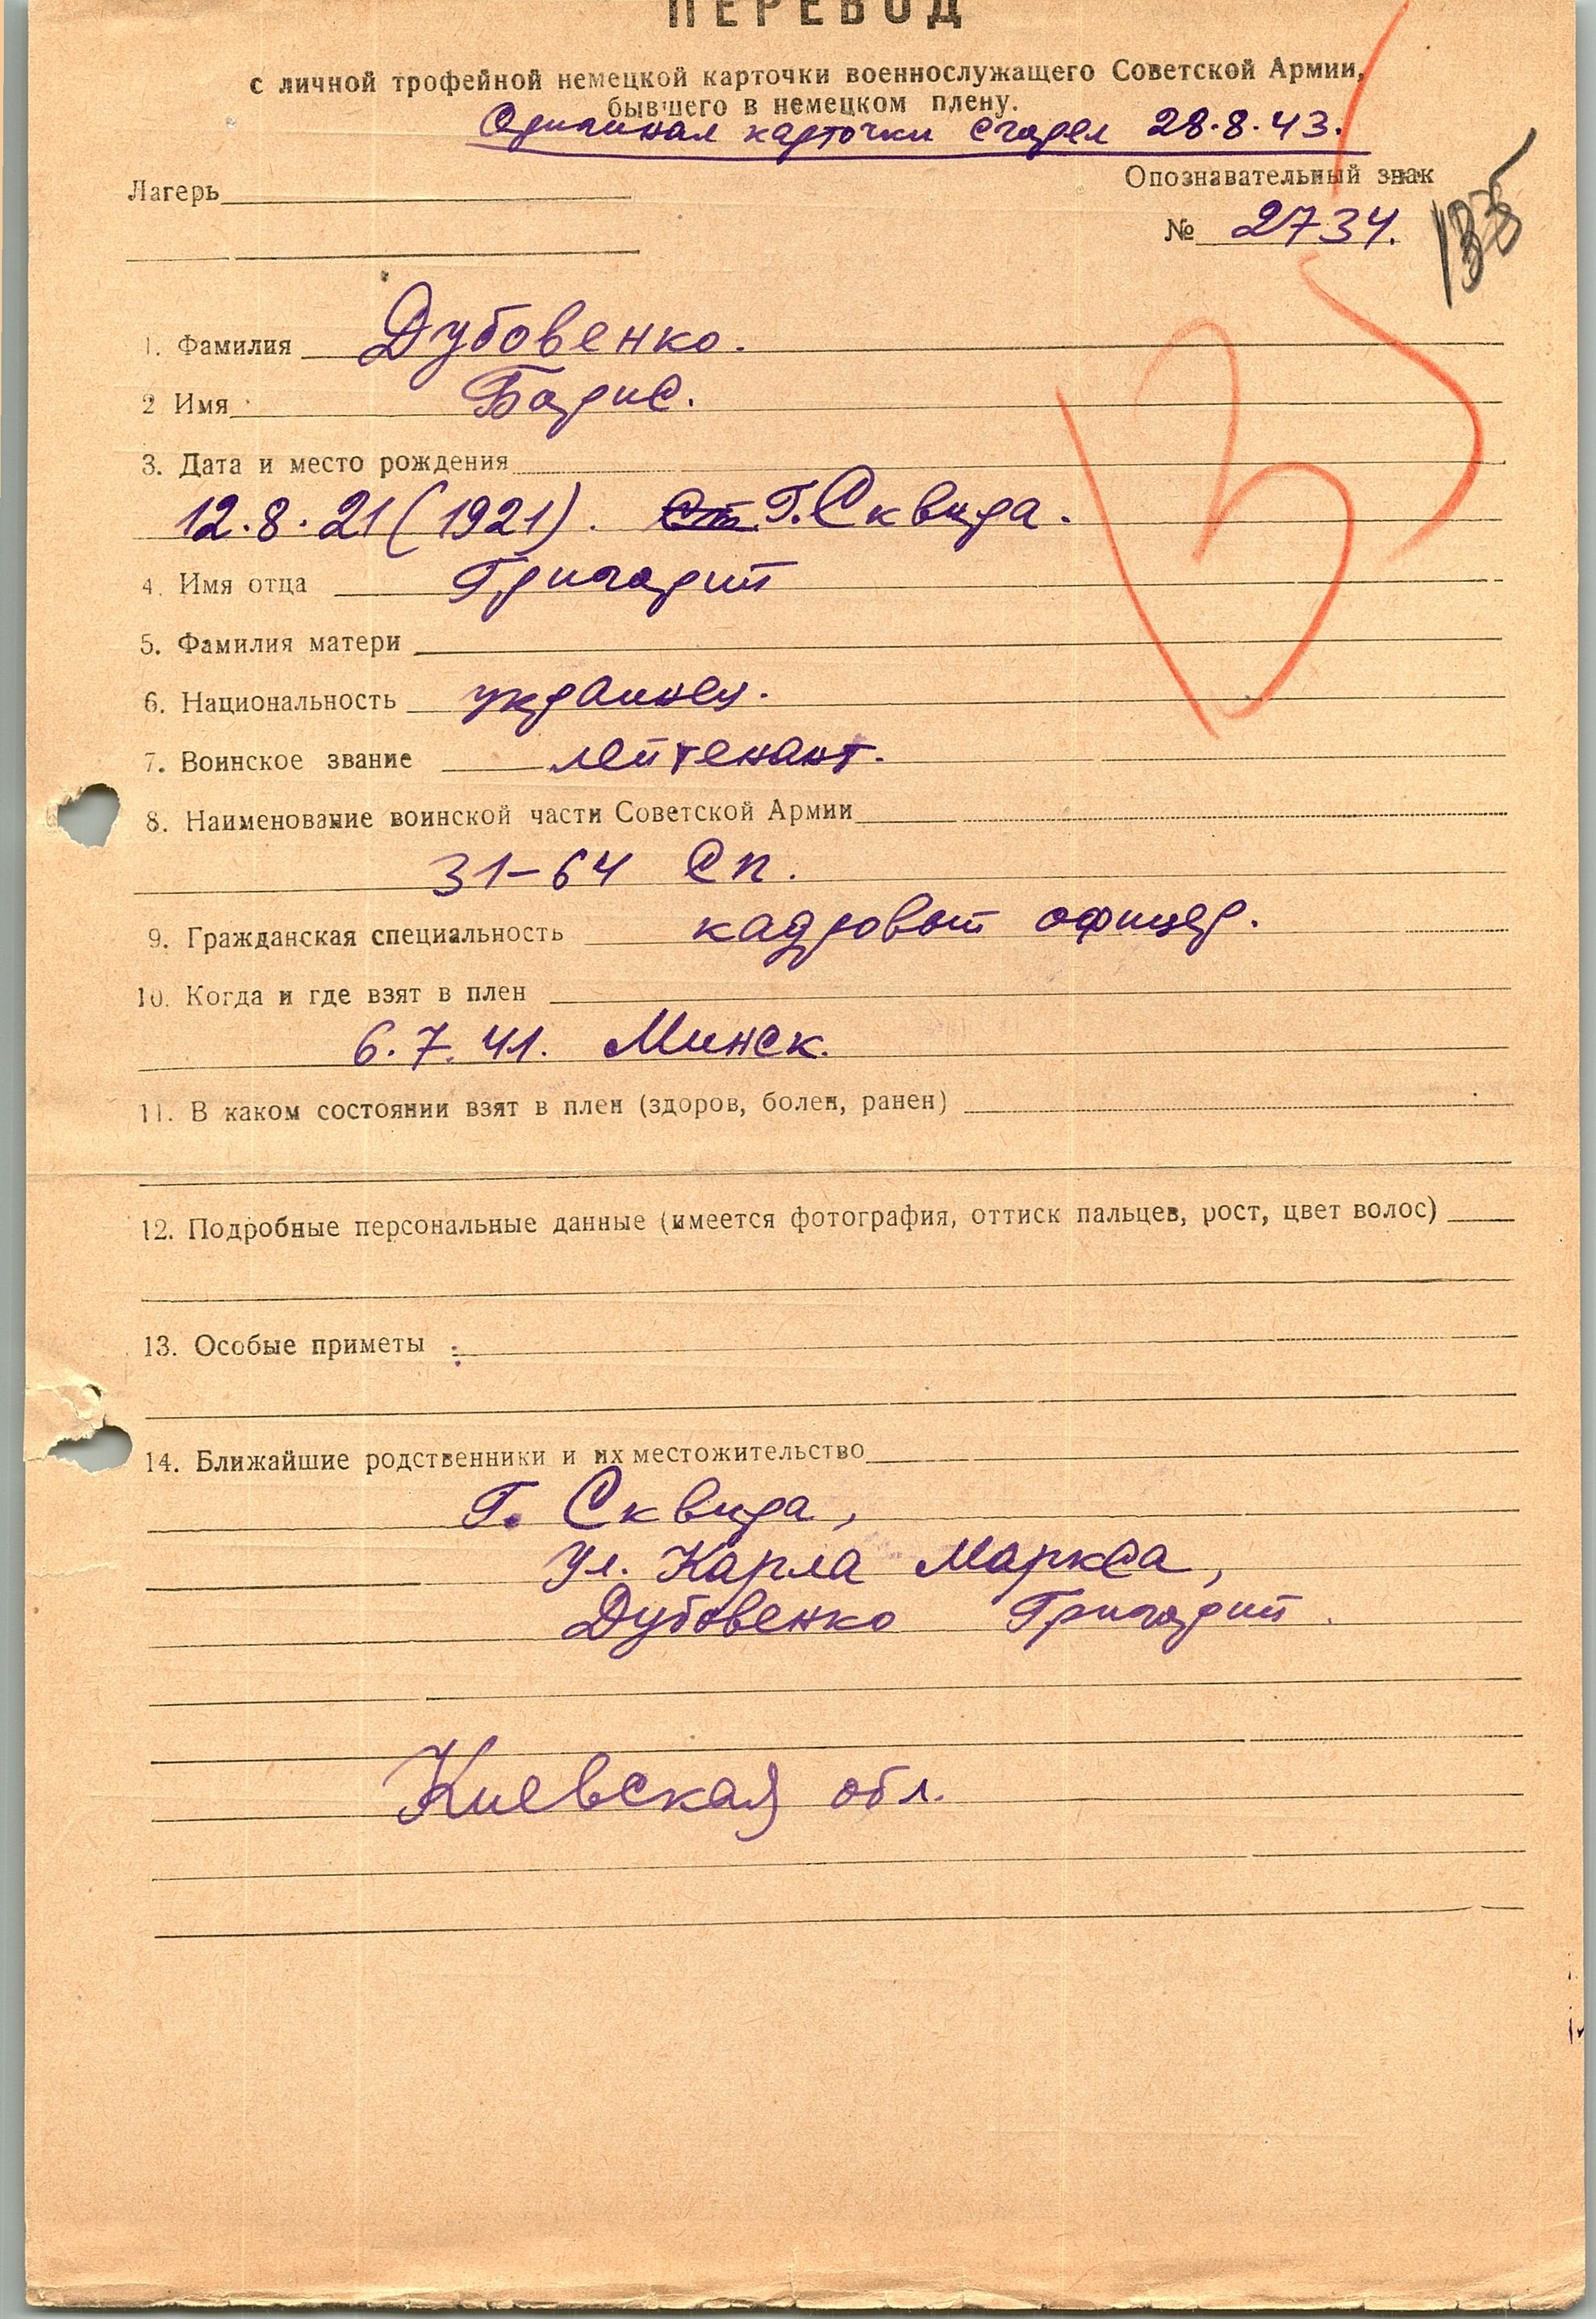 ПЕРЕВОД
с личной трофейной немецкой карточки военнослужащего Советской Армии,
бывшего в немецком плену.
Оригинал карточки сгорел 28.8.43.
Лагерь
Опознавательный знак
№ 2734.
135
1. Фамилия Дубовенко.
2 Имя Борис.
3. Дата и место рождения
12.8.21 (1921). ст. г. Сквира.
4. Имя отца Григорий
5. Фамилия матери
6. Национальность украинец.
7. Воинское звание лейтенант.
8. Наименование воинской части Советской Армии
31-64 сп.
9. Гражданская специальность кадровый офицер.
10. Когда и где взят в плен
6.7.41. Минск.
11. В каком состоянии взят в плен (здоров, болен, ранен)
12. Подробные персональные данные (имеется фотография, оттиск пальцев, рост, цвет волос)
13. Особые приметы :
14. Ближайшие родственники и их местожительство
Г. Сквира,
ул. Карла Маркса,
Дубовенко Григорий.
Киевская обл.